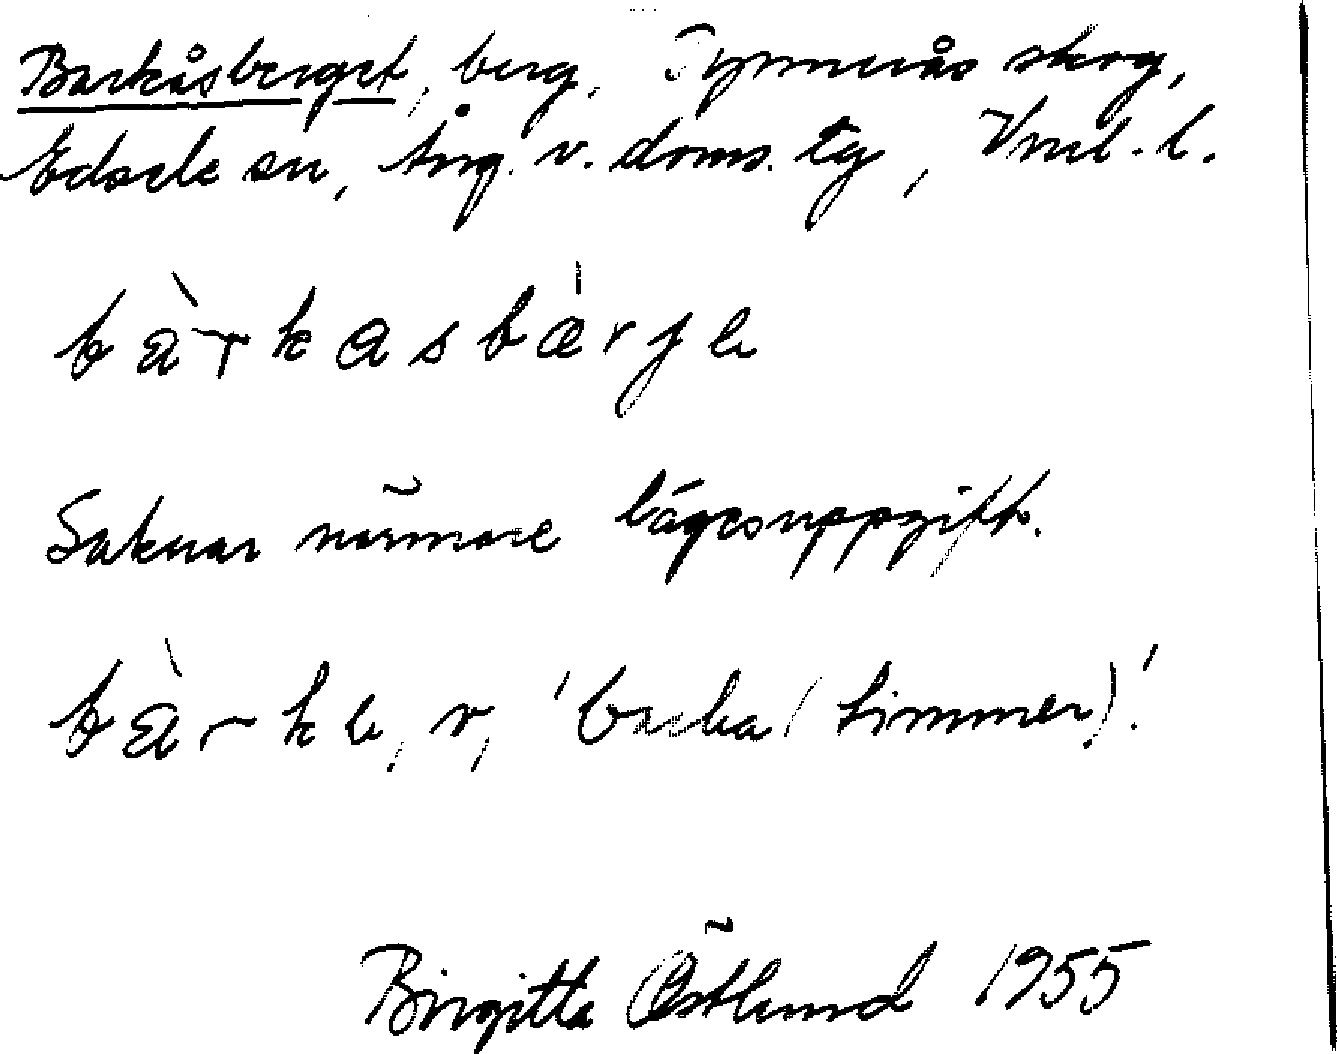 Barkåsberget, berg, Tynnerås skog,
Edsele sn, Ång. v. doms. tg, Vnrl. l.
bàrkasbärje
Saknar närmare lägesuppgift.
bàrke, v, 'barka (timmer)!'
Birgitta Östlund 1955